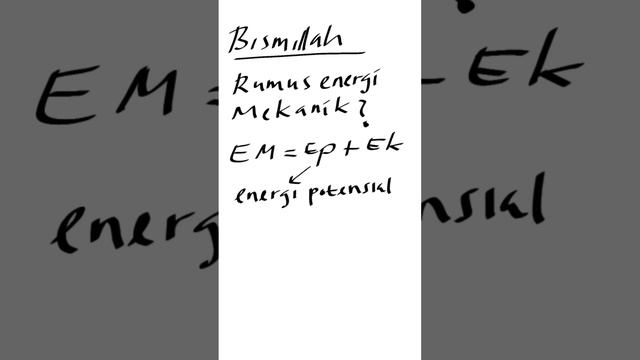 Bismillah
Rumus energi
Mekanik?
EM = Ep + Ek
energi potensial